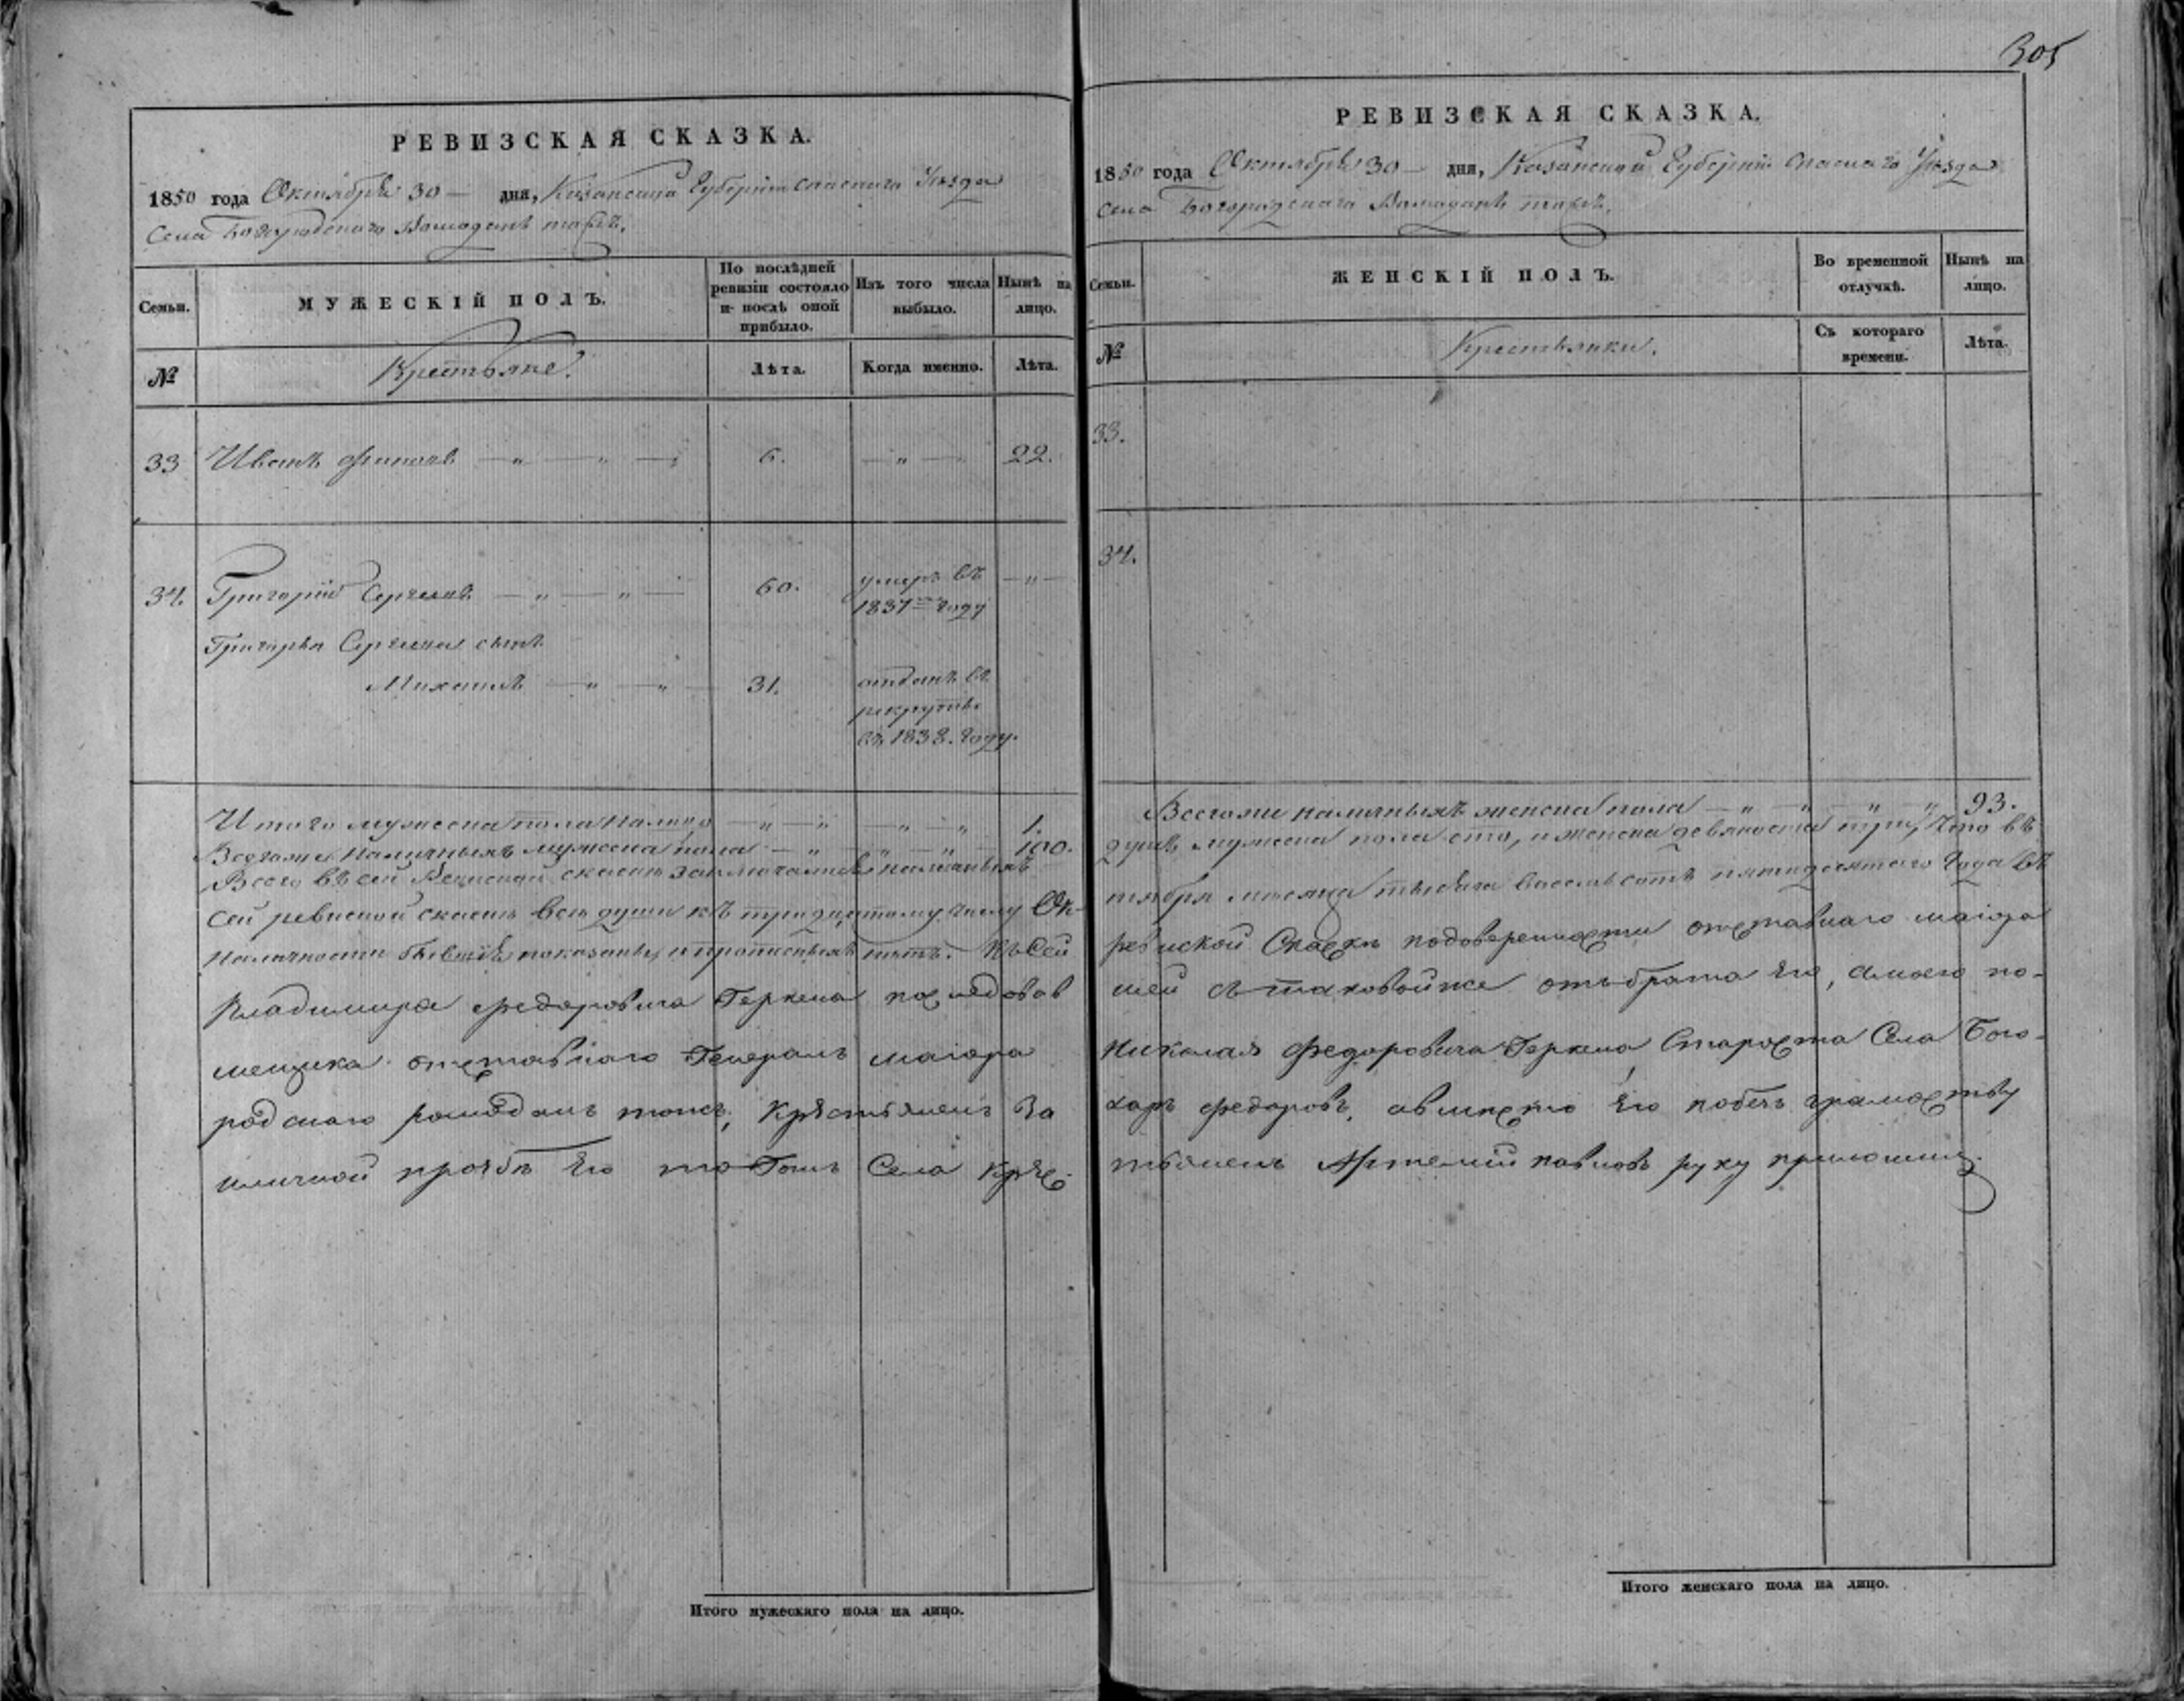 305
РЕВИЗСКАЯ СКАЗКА.
1850 года Октября 30 — дня, Казанской Губернии Спаскаго Уезда
Села Богородскаго Рамадань тожъ.
Семьи.
МУЖЕСКІЙ ПОЛЪ.
По послѣдней ревизіи состояло и послѣ оной прибыло.
Изъ того числа выбыло.
Нынѣ на лицо.
№
Крестьяне.
Лѣта.
Когда именно.
Лѣта.
33 Иванъ 6. — „ — 22.
34. Григорій Сергеевъ — „ — „ — 60. умеръ въ 1837мъ году — „ —
Григорья Сергеева сынъ
Михаилъ — „ — „ — 31. отданъ въ рекруты въ 1838. году.
Итого мужеска пола налицо — „ — „ — „ — „ 1.
Всегоже наличныхъ мужеска пола — „ — „ — „ — 100.
Всего въ сей Ревиской скаске заключается наличныхъ
сей ревиской скаске все души къ тридцатому числу Ок-
наличности бывшіе показаны, и прописныхъ нетъ. Къ сей
Владимира Федоровича Геркена последовав
мещика отставнаго Генералъ маіора
родскаго рамаданъ тожъ, Крестьяненъ За
иличной прозбе Его того Села Крес
РЕВИЗСКАЯ СКАЗКА.
1850 года Октября 30 — дня, Казанской Губерніи Спаскаго Уезда
Села Богородскаго Рамадань тожъ.
Семьи.
ЖЕНСКІЙ ПОЛЪ.
Во временной отлучкѣ.
Нынѣ на лицо.
№
Крестьянки.
Съ котораго времени.
Лѣта.
33.
34.
Всегоже наличныхъ женска пола — „ — „ — „ — „ 93.
душъ мужеска пола сто, и женска девяноста три, Что въ
тября месяца тысяча восемьсотъ пятидесятаго Года въ
ревиской Скаске подоверенности отставнаго маіора
шей съ таковойже отъ брата Его, а моего по-
Николая Федоровича Геркена, Староста Села Бого-
харъ Федоровъ, авместо Его побезъ грамотству
тьяненъ Артемій павловъ руку приложилъ.
Итого мужескаго пола на лицо.
Итого женскаго пола на лицо.